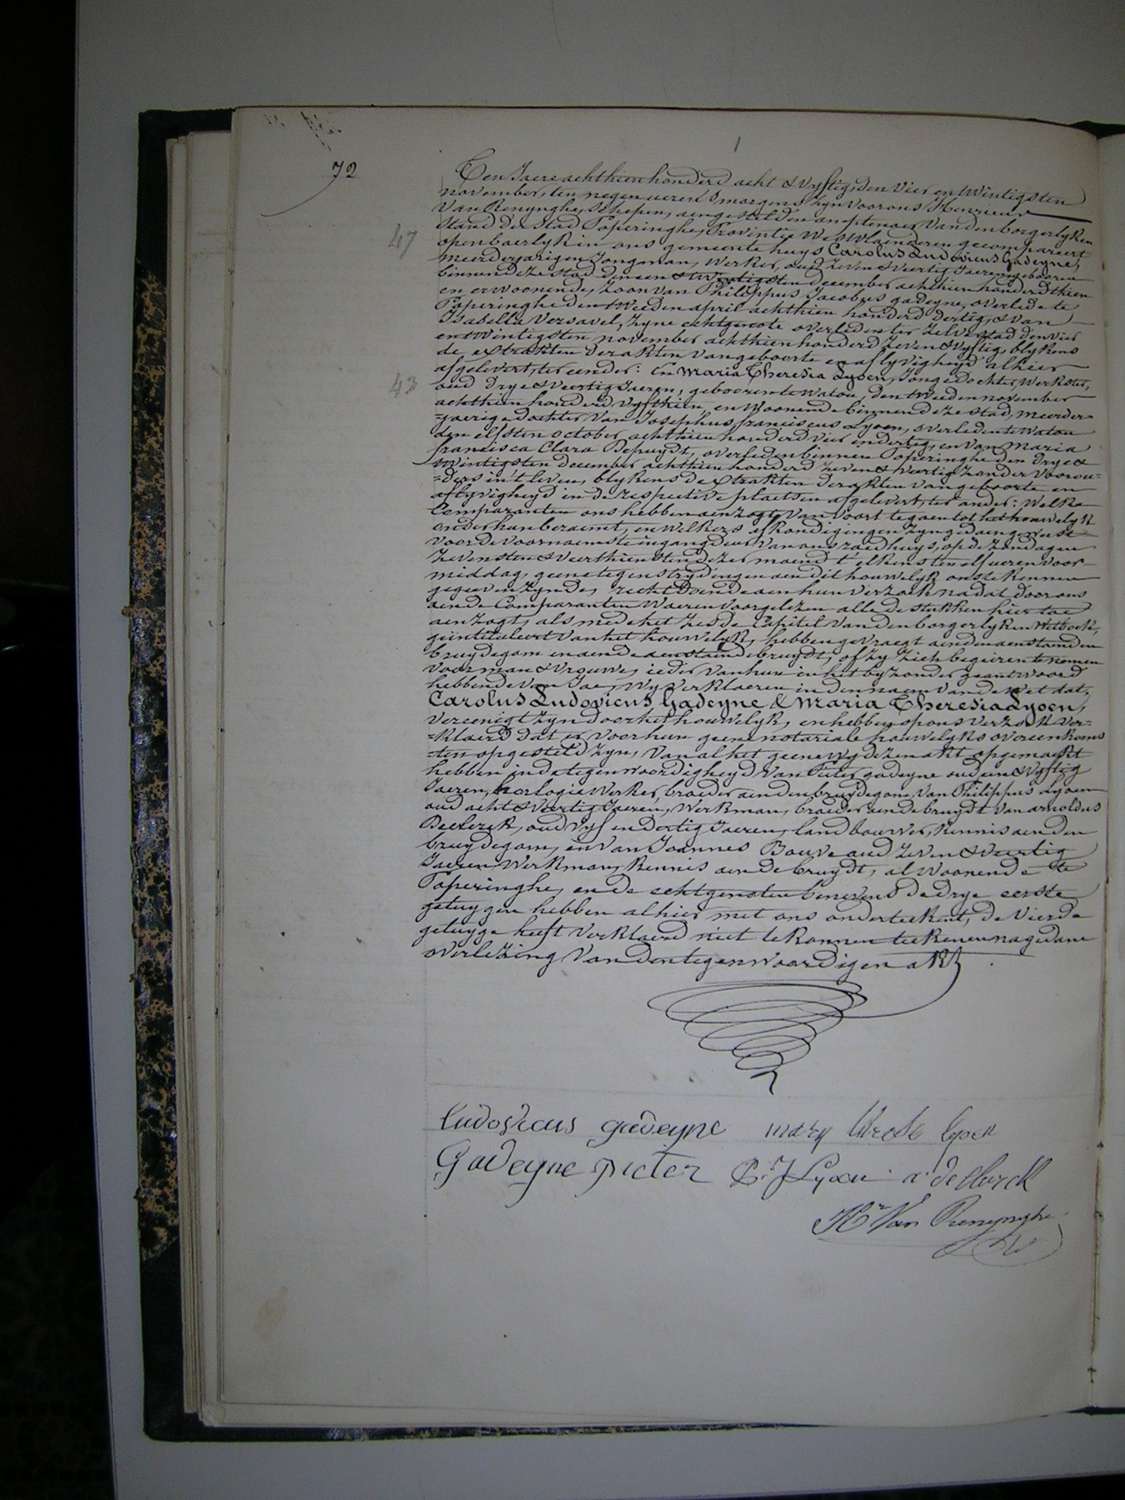 72
Ten Jaere achthien honderd acht & vyftig, den vier en twintigsten
november, ten negen ueren s'morgens, zyn voor ons Henricus
Van Renynghe, Schepen, aengestelden amptenaer van den borgerlyken
stand der stad Poperinghe, Provintie West Vlaenderen gecompareert
47
openbaerlyk in ons gemeente huys Carolus Ludovicus Gadeyne,
meerderjarigen Jongman, Werker, oud zeven & veertig Jaeren, geboren
binnen deze stad den een & twintigsten december achthien honderd thien
en er woonende, zoon van Philippus Jacobus gadeyne, overleden te
Poperinghe den tweeden april achthien honderd dertig, & van
Isabella Versavel, zyne echtgenote overleden ter zelve stad den vier
en twintigsten november achthien honderd zeven & vyftig, blykens
de extrakten der akten van geboorte en aflyvigheyd alhier
afgelevert, ter eender: En Maria Theresia Lyoen, Jonge dochter, Werkster,
43
oud drye & veertig Jaeren, geboren te Watou den tweeden november
achthien honderd vyfthien, en woonende binnen deze stad, meerder=
=jaerige dochter van Josephus franciscus Lyoen, overleden te Watou
den elfsten october achthien honderd vier en dertig, en van Maria
francisca Clara Depuydt, overleden binnen Poperinghe den drye &
twintigsten december achthien honderd zeven & veertig zonder voorou=
=ders in 't leven, blykens de extrakten der akten van geboorte en
aflyvigheyd in de respective plaetsen afgelevert, ter ander: Welke
Comparanten ons hebben aenzogt van voort te gaen tot het houwelyk
onder hun beraemt, en welkers afkondigingen zyn gedaen geweest
voor de voornaemste ingang deur van ons raedhuys, op de zondagen
zevensten & veerthiensten dezer maend t'elkens ten elf ueren voor
middag, geene tegenstrydingen aen dit houwelyk ons te kennen
gegeven zynde, recht doende aen hun verzoek, na dat door ons
aen de Comparanten waeren voorgelezen alle de stukken hier toe
aenzogt, als mede het zesde Capitel van den borgerlyken Wetboek,
geintituleert van het houwelyk, hebben gevraegt aen den aenstaenden
bruydegom en aen de aenstaende bruydt, of zy zich begeiren te nemen
voor man & vrouwe, ieder van hun in het byzonder geantwoord
hebbende van Jae, Wy verklaeren in den naem van de Wet dat,
Carolus Ludovicus Gadeyne & Maria Theresia Lyoen,
vereenigt zyn door het houwelyk, en hebben op ons verzoek ver=
=klaerd dat er voor hun geene notariale houwelyks overeenkoms
=ten opgesteld zyn, van al het geene wy deze akt opgemaekt
hebben in de tegenwoordigheyd van Pieter gadeyne oud een & vyftig
Jaeren, horlogie Werker, broeder aen den bruydegom, van Philippus Lyoen
oud acht & veertig Jaeren, Werkman, broeder aen de bruydt van arnoldus
Declerck, oud vyf en dertig Jaeren, landbouwer, kennis aen den
bruydegom, en van Joannes Bouve oud zeven & veertig
Jaeren Werkman, kennis aen de bruydt, al woonende te
Poperinghe, en de echtgenoten benevens de drye eerste
getuygen hebben alhier met ons onderteekent, de vierde
getuyge heeft verklaerd niet te konnen teekenen na gedane
overlezing van den tegenwoordigen akt
ludovicus gadeyne mary terese lyoen
Gadeyne pieter P. J Lyoen a declerck
Hri Van Renynghe